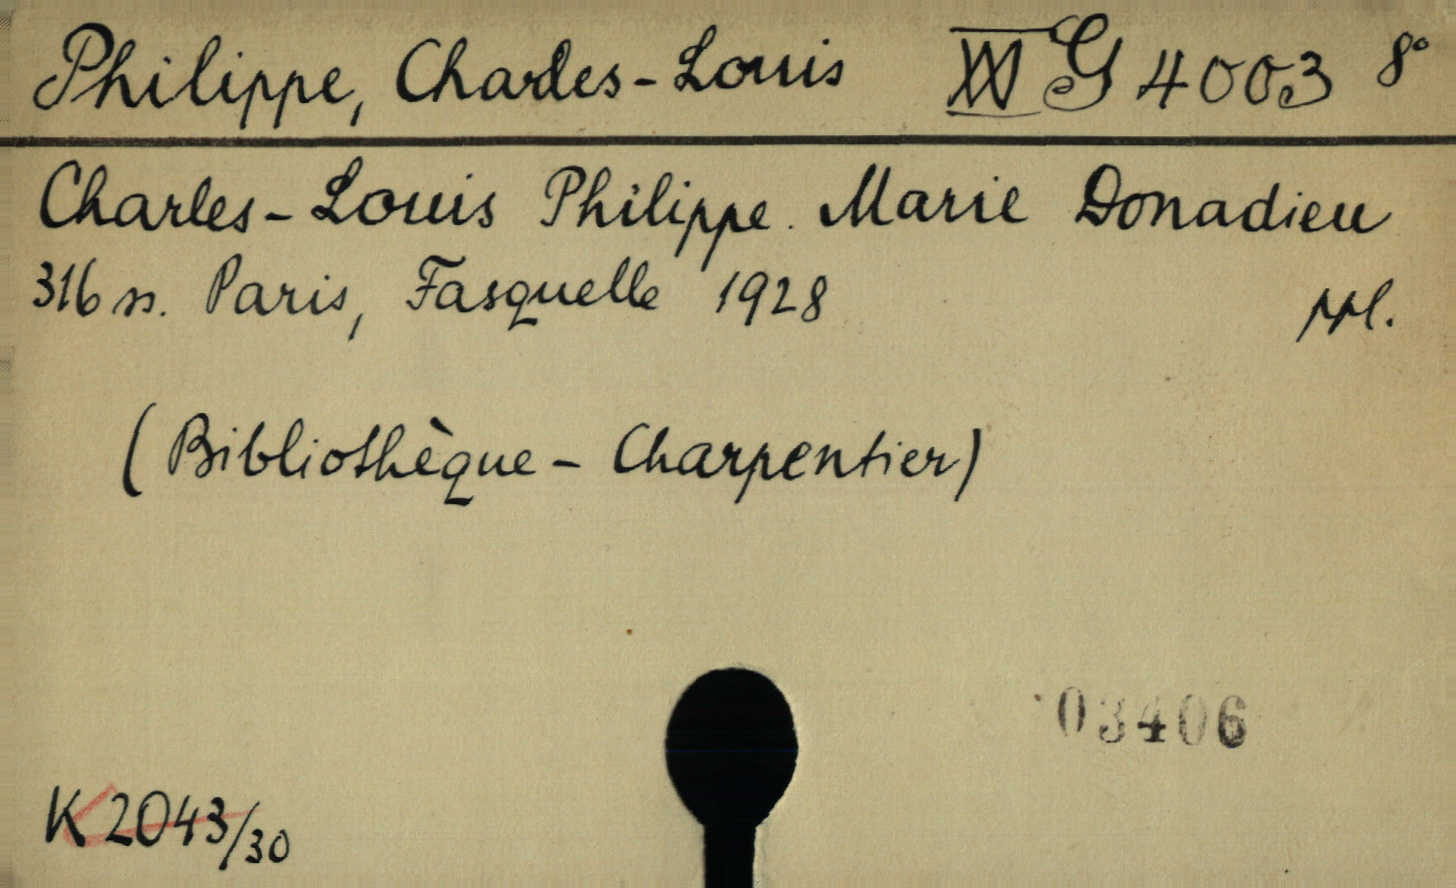 Philippe, Charles-Louis XXI G 4003 8°
Charles-Louis Philippe. Marie Donadieu
316 s. Paris, Fasquelle 1928 ppl.
(Bibliothèque - Charpentier)
03406
K 2043/30